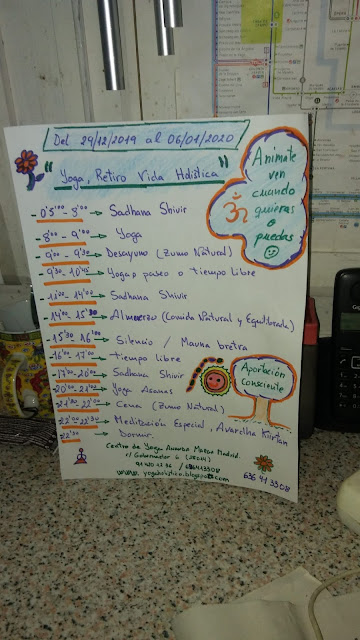 Del 29/12/2019 al 06/01/2020
"Yoga, Retiro Vida Holística"
Animate
ven
cuando
quieras
o
puedas
ॐ
05'00 - 8'00 → Sadhana Shivir
8'00 - 9'00 → Yoga
9'00 - 9'30 → Desayuno (Zumo Natural)
9'30 - 10'45 → Yoga, paseo o tiempo libre
11'00 - 14'00 → Sadhana Shivir
14'00 - 15'30 → Almuerzo (Comida Natural y Equilibrada)
15'30 - 16'00 → Silencio / Mauna
16'00 - 17'00 → Tiempo libre
17'00 - 20'00 → Sadhana Shivir
20'00 - 21'00 → Yoga Asanas
21'30 - 22'00 → Cena (Zumo Natural)
22'00 - 22'30 → Meditación Especial, Kirtan
22'30 → Dormir.
Aportación
consciente
Centro de Yoga Madrid.
c/ Gobernador
636413308
www.yogaholistico.blogspot.com
636 41 33 08